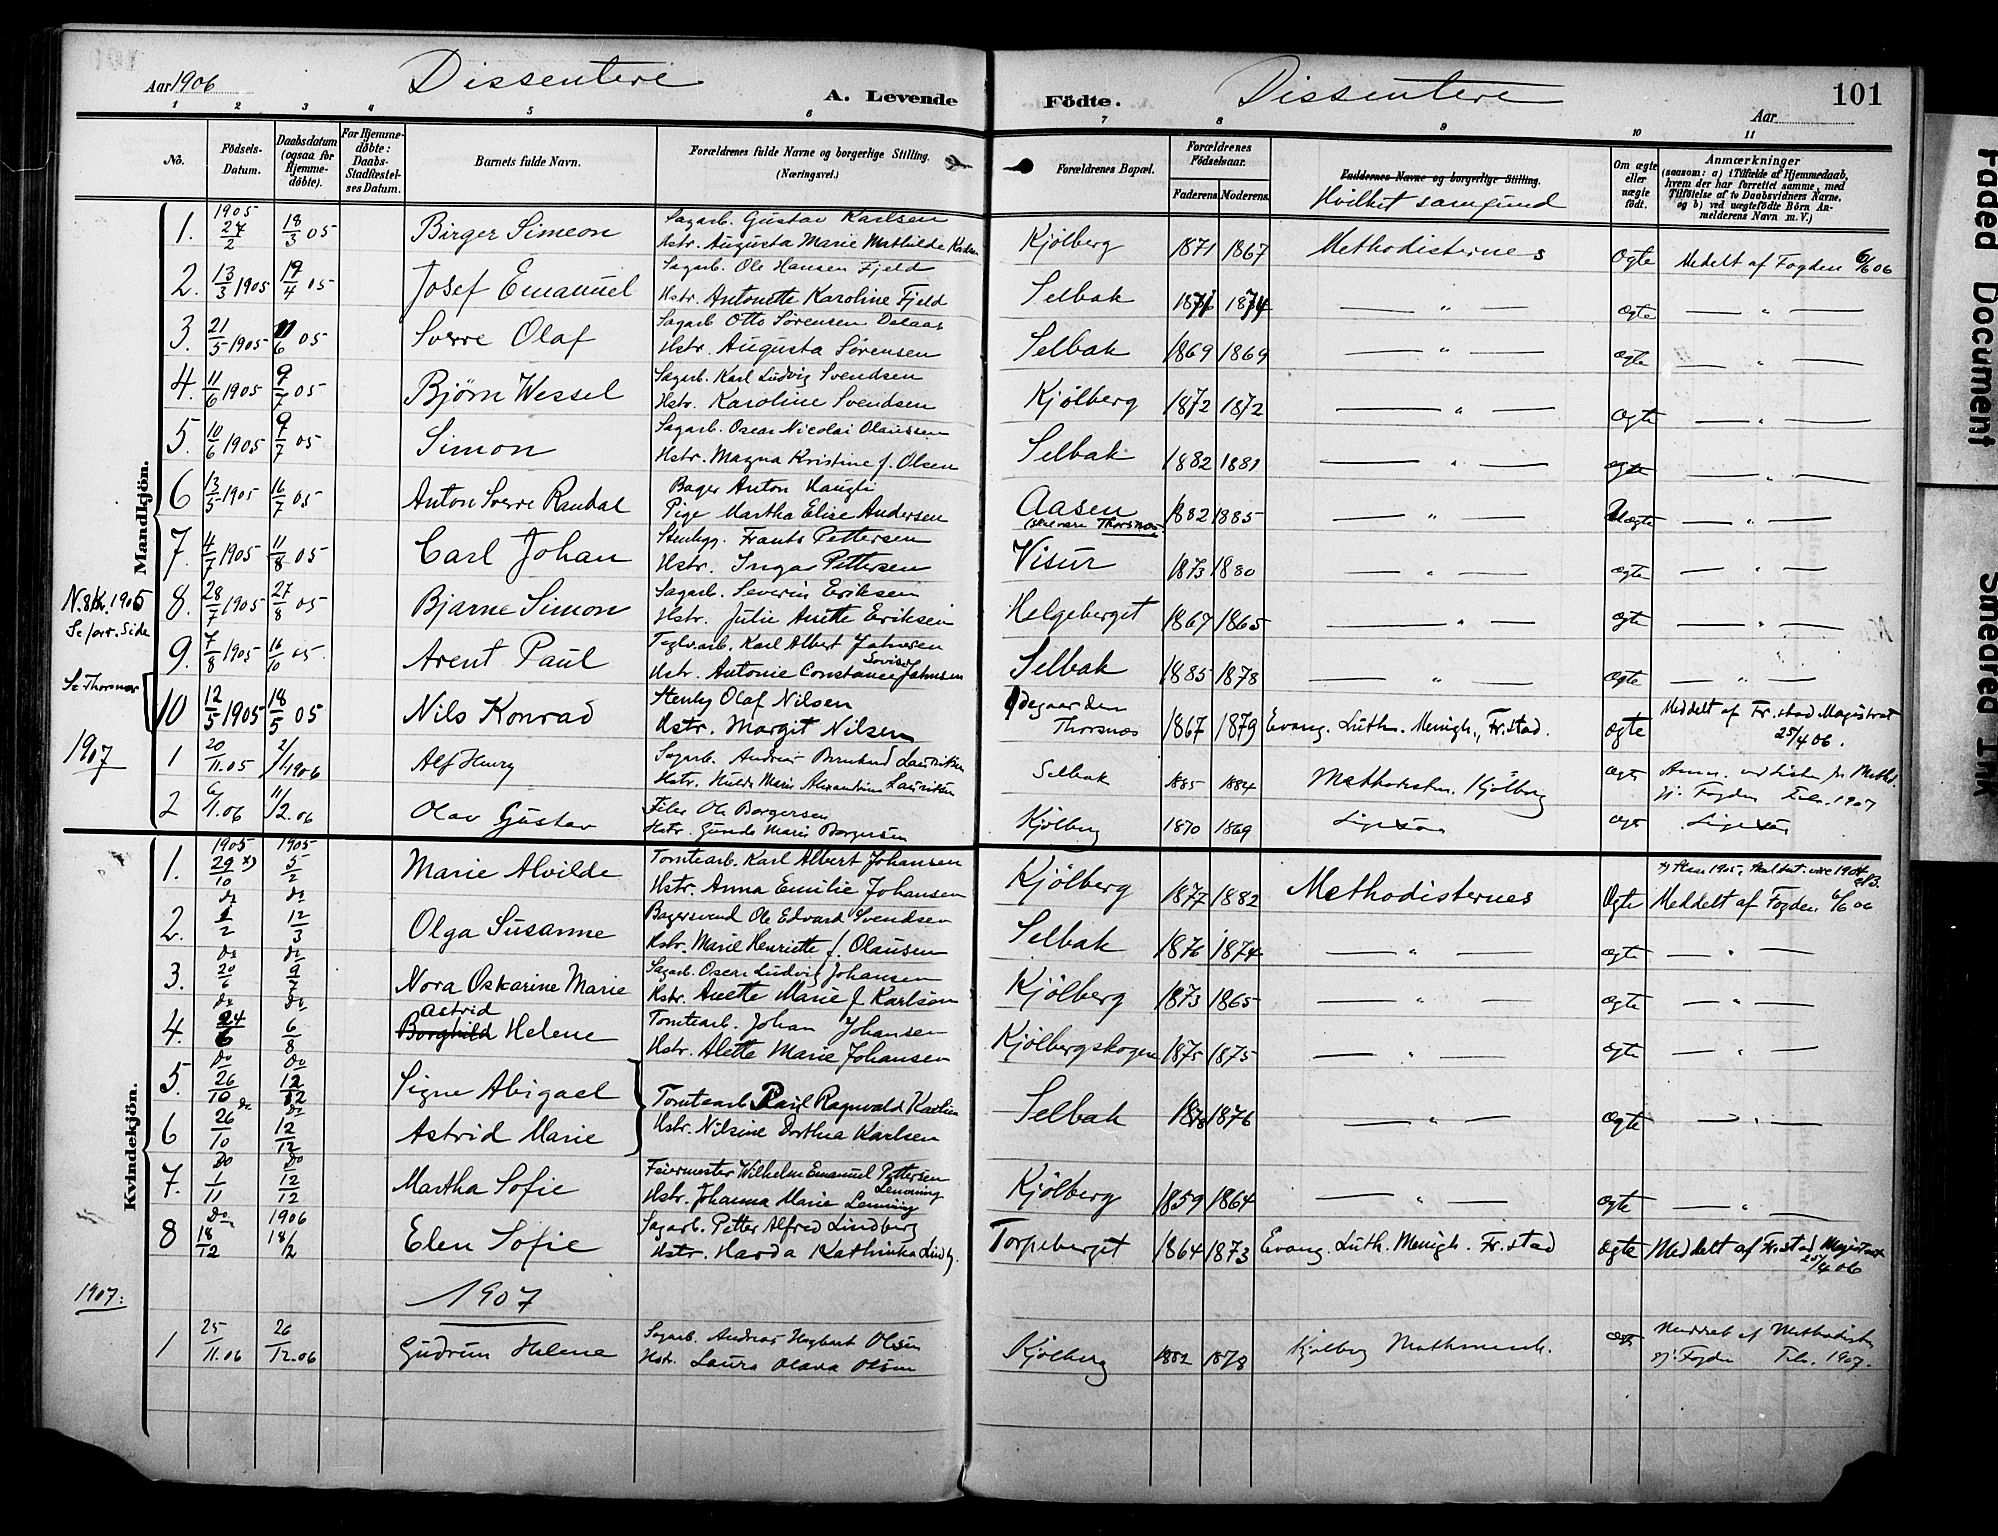 Aar 1906 Dissentere A. Levende Födte. Dissentere Aar 101
1 2 3 4 5 6 7 8 9 10 11
No. Födsels-Datum. Daabsdatum (ogsaa for Hjemmedöbte). For Hjemmedöbte: Daabs-Stadfæstelses Datum. Barnets fulde Navn. Forældrenes fulde Navne og borgerlige Stilling. (Næringsvei.) Forældrenes Bopæl. Forældrenes Födselsaar. Faderens. Moderens. Faddernes Navne og borgerlige Stilling. Hvilket samfund Om ægte eller uægte födt. Anmærkninger (saasom: a) i Tilfælde af Hjemmedaab, hvem der har forrettet samme, med Tilföielse af to Daabsvidners Navne, og b) ved uægtefödte Börn Anmelderens Navn m. V.)
Mandkjön.
1. 1905 27/2 18/3 05 Birger Simeon Sagarb. Gustav Karlsen Kjölberg 1871 1867 Methodisternes Ægte Medelt af Fogden 6/6 06
Hstr. Augusta Marie Mathilde Karlsen
2. 13/3 1905 19/4 05 Josef Emanuel Sagarb. Ole Hansen Fjeld Selbak 1871 1874 — " — Ægte — " —
Hstr. Antonette Karoline Fjeld
3. 21/5 1905 11/6 05 Sverre Olaf Sagarb Otto Sørensen Selbak 1869 1869 — " — ægte — " —
Hstr. Augusta Sørensen
4. 11/6 1905 9/7 05 Bjørn Wessel Sagarb. Karl Ludvig Svendsen Kjölberg 1872 1872 — " — Ægte — " —
Hstr. Karoline Svendsen
5. 10/6 1905 9/7 05 Simon Sagarb. Oscar Nicolai Olaussen Selbak 1882 1881 — " — ægte — " —
Hstr. Magna Kristine f. Olsen
6 13/5 1905 16/7 05 Anton Sverre Randal Bager Anton Haugli Aasen 1882 1885 — " — Uægte — " —
Pige Martha Elise Andersen Thorsnæs
7. 4/7 1905 11/8 05 Carl Johan Stenhgg. Frants Pettersen Visur 1873 1880 — " — ægte — " —
Hstr. Inga Pettersen
N. 8 1905 Se forr. Side
8. 28/7 1905 27/8 05 Bjarne Simon Sagarb. Severin Eriksen Helgeberget 1867 1865 — " — ægte — " —
Hstr. Julie Anette Eriksen
9. 7/8 1905 16/10 05 Arent Paul Teglv.arb. Karl Albert Jahnsen Selbak 1885 1878 — " — ægte — " —
Hstr. Antonie Constance Lovise Jahnsen
Se Thorsnæs
10 12/5 1905 18/5 05 Nils Konrad Stenhg Olaf Nilsen Ødegaarden 1867 1879 Evang. Luth. Menigh., Fr.stad. ægte Meddelt af Fr.stad Magistrat
Hstr. Margit Nilsen Thorsnæs 25/4 06.
1907
1 20/11.05 2/1 1906 Alf Henry Sagarb. Andreas Bernhard Lauritsen Selbak 1885 1884 Methodistm. Kjölberg Ægte
Hstr. Hulda Marie Alexandrine Lauritsen gj. Fogden Febr. 1907
2 6/11.06 11/12.06 Olav Gustav Filer Ole Borgersen Kjölberg 1870 1869 Ligesaa ægt Ligesaa
Hstr. Gunda Marie Borgersen
Kvindekjön.
1. 1905 29/10 x) 1905 5/2 Marie Alvilde Tomtearb. Karl Albert Johansen Kjölberg 1877 1882 Methodisternes Ægte x) Staar 1905, skal vist være 1904
Hstr. Anna Emilie Johansen Meddelt af Fogden 6/6 06
2. Do 1/2 Do 12/3 Olga Susanne Bagersvend Ole Edvard Svendsen Selbak 1876 1874 — " — ægte — " —
Hstr. Marie Henriette f. Olausen
3. Do 20/6 Do 9/7 Nora Oskarine Marie Sagarb. Oscar Ludvig Johansen Kjölberg 1873 1865 — " — ægte — " —
Hstr. Anette Marie f Karlson
Astrid
4. Do 24/6 Do 6/8 Borghild Helene Tomtearb. Johan Johansen Kjölbergskogen 1875 1875 — " — ægte — " —
Hstr. Alette Marie Johansen
5 Do 26/10 Do 12/12 Signe Abigael Tomtearb Paul Ragnvald Karlsen Selbak 1878 1876 — " — ægte — " —
6 Do 26/10 Do 12/12 Astrid Marie Hstr. Nilsine Dorthea Karlsen
7. Do 1/11 Do 12/12 Martha Sofie Feiermester Wilhelm Emanuel Pettersen Lenning Kjölberg 1859 1864 — " — ægte — " —
Hstr. Johanna Marie Lenning
8 Do 18/12 1906 18/2 Elen Sofie Sagarb. Petter Alfred Lindberg Torpeberget 1864 1873 Evang. Luth. Menigh. Fr.stad ægte Meddelt af Fr.stad Magistrat
Hstr. Harda Kathinka Lindbg. 25/4 06
1907: 1907
1 25/11.06 26/12.06 Gudrun Helene Sagarb. Andreas Hagbart Olsen Kjölberg 1882 1878 Kjölberg Methmensk. ægt Meddelt af Methodistm
Hstr. Laura Olava Olsen gj. Fogden Febr. 1907.
Faded Document
Smeared Ink